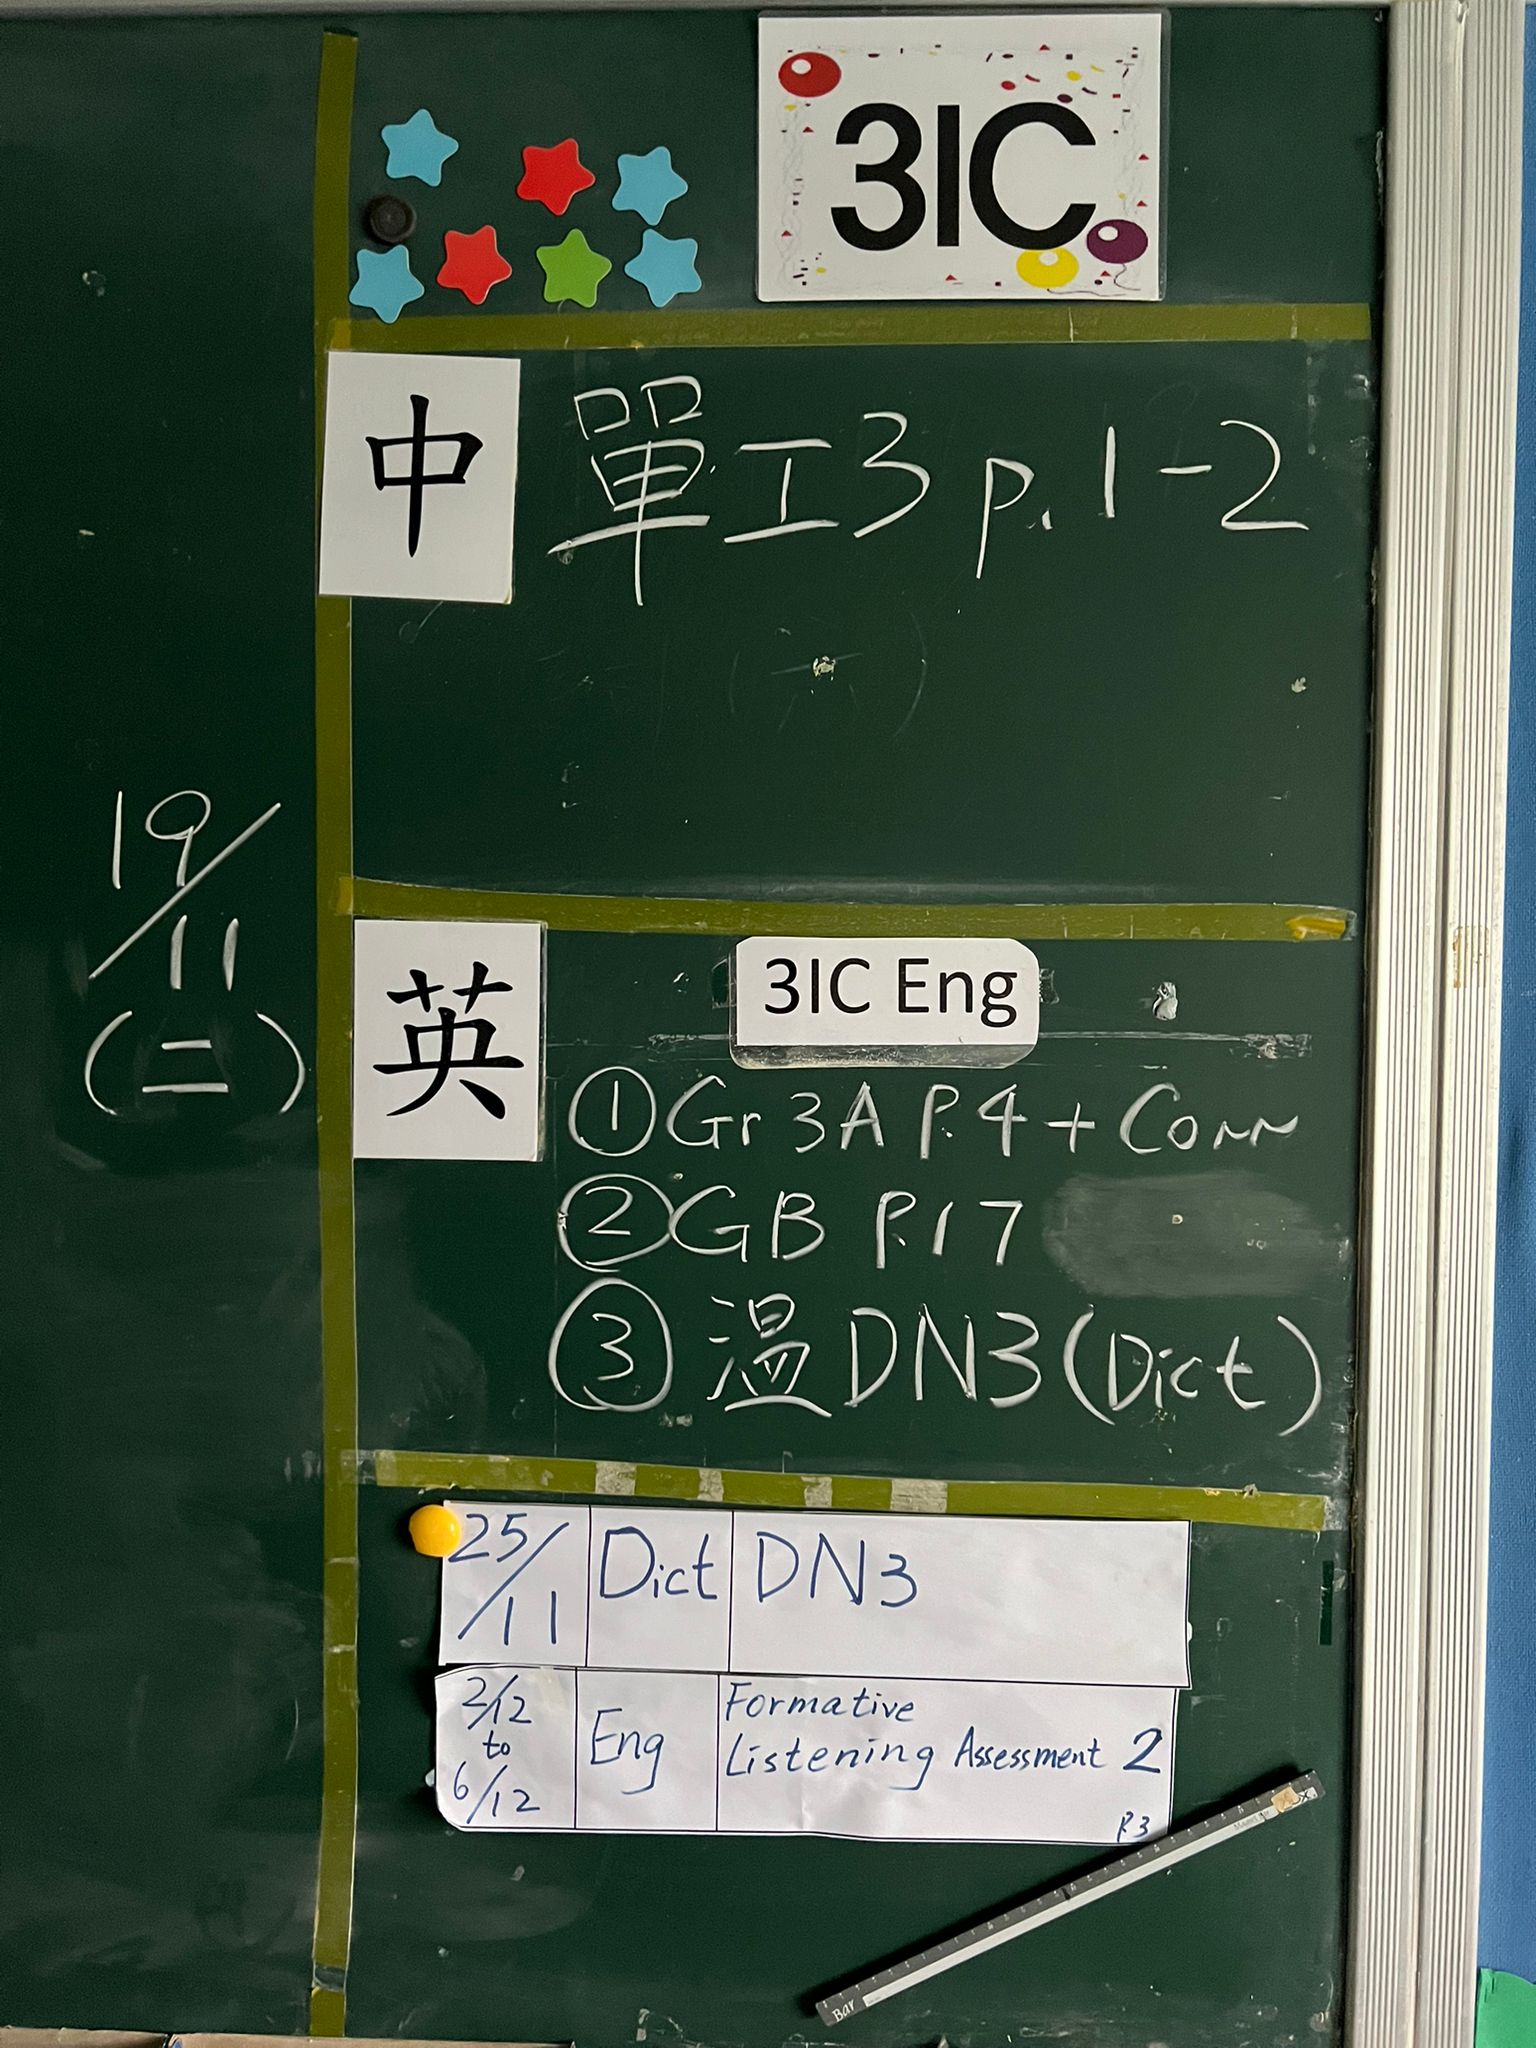 3IC
中
單工3 p.1-2
19/11
(二)
英
3IC Eng
①Gr 3A P.4 + Corr
②GB P.17
③温DN3(Dict)
25/11 Dict DN3
2/12 to 6/12 Eng Formative Listening Assessment 2
P.3
Bar